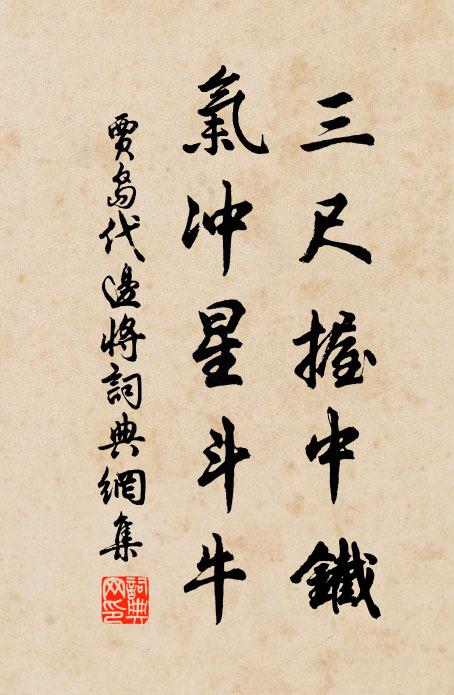 三尺握中鐵
氣冲星斗牛
賈島代邊將詞典網集
詞典網印